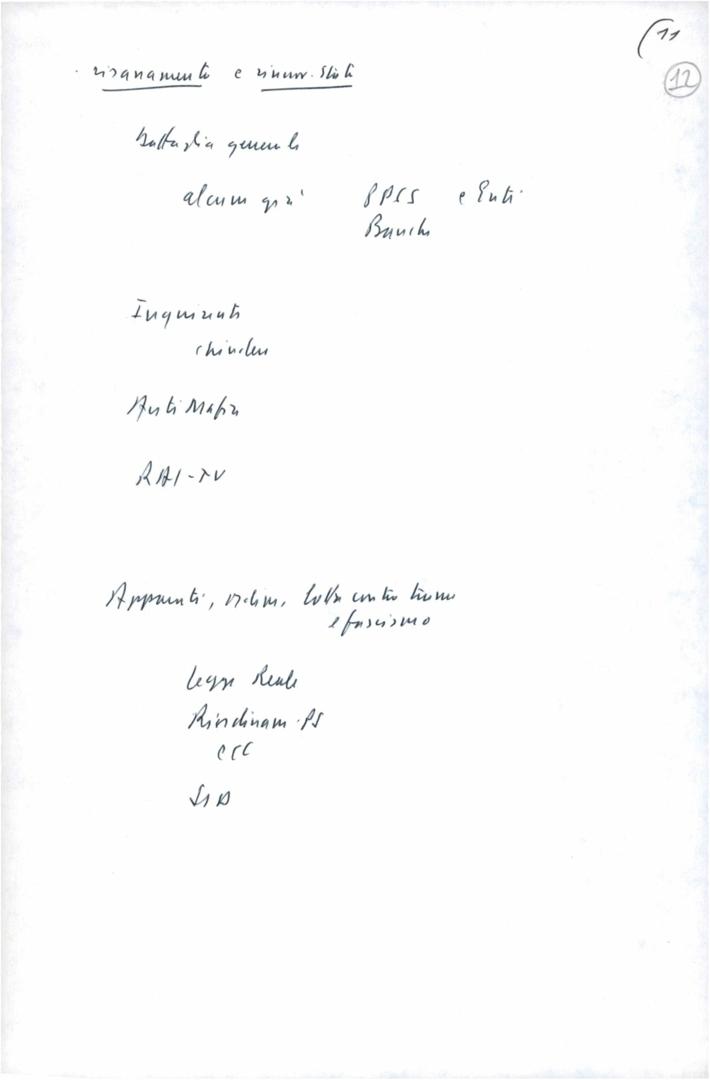 (11
12
· risanamento e rinnov. Stato
Battaglia generale
alcuni già PPSS e Enti
Banche
Inquirente
chiudere
Anti Mafia
RAI-TV
Apparati, ordine, lotta contro
e fascismo
Legge Reale
Riordinam. PS
ecc
SID